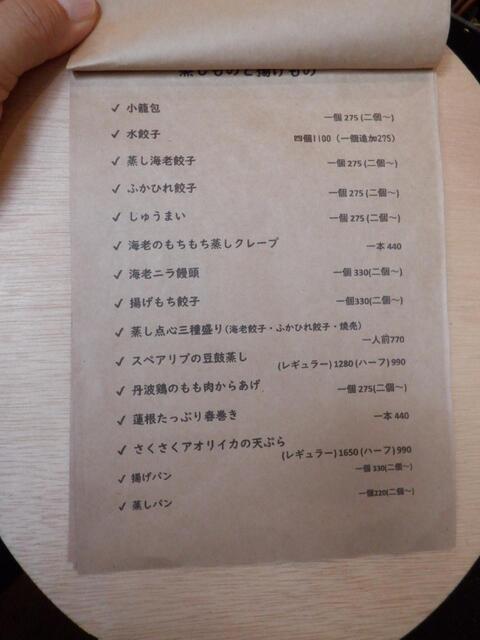 蒸しものと揚げもの
✓ 小籠包
一個 275 (二個～)
✓ 水餃子
四個1100（一個追加275）
✓ 蒸し海老餃子
一個 275 (二個～)
✓ ふかひれ餃子
一個 275 (二個～)
✓ しゅうまい
一個 275 (二個～)
✓ 海老のもちもち蒸しクレープ
一本 440
✓ 海老ニラ饅頭
一個 330(二個～)
✓ 揚げもち餃子
一個330(二個～)
✓ 蒸し点心三種盛り(海老餃子・ふかひれ餃子・焼売)
一人前770
✓ スペアリブの豆鼓蒸し
(レギュラー) 1280 (ハーフ) 990
✓ 丹波鶏のもも肉からあげ
一個 275(二個～)
✓ 蓮根たっぷり春巻き
一本 440
✓ さくさくアオリイカの天ぷら
(レギュラー) 1650 (ハーフ) 990
✓ 揚げパン
一個 330(二個～)
✓ 蒸しパン
一個220(二個～)